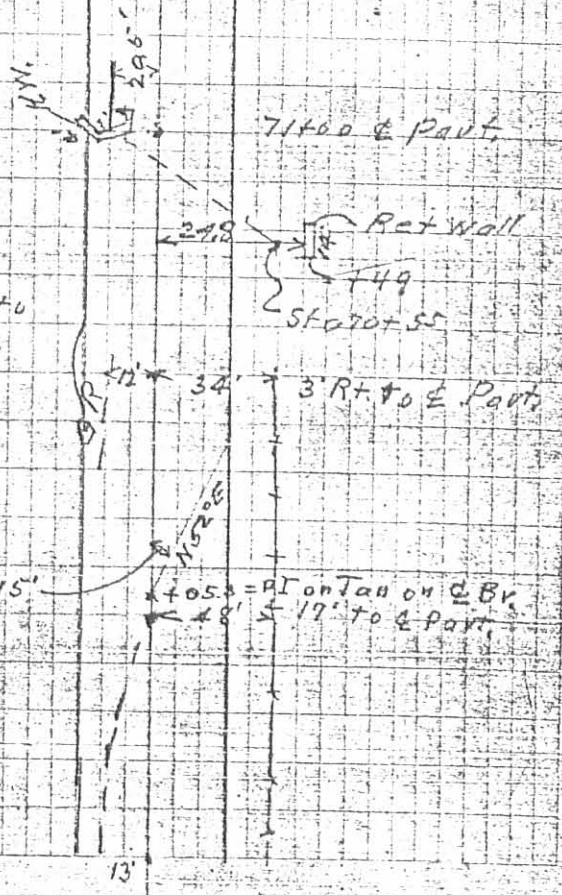 29.5'
W.
71+00 ₵ Pavt.
24.8
Ret Wall
14'
+49
Sta 70+55
to
12'
34'
3' Rt. to ₵ Pavt.
P
N52°E
15'
+05.3 = PI on Tan on ₵ Br.
48'
17' to ₵ Pavt.
13'